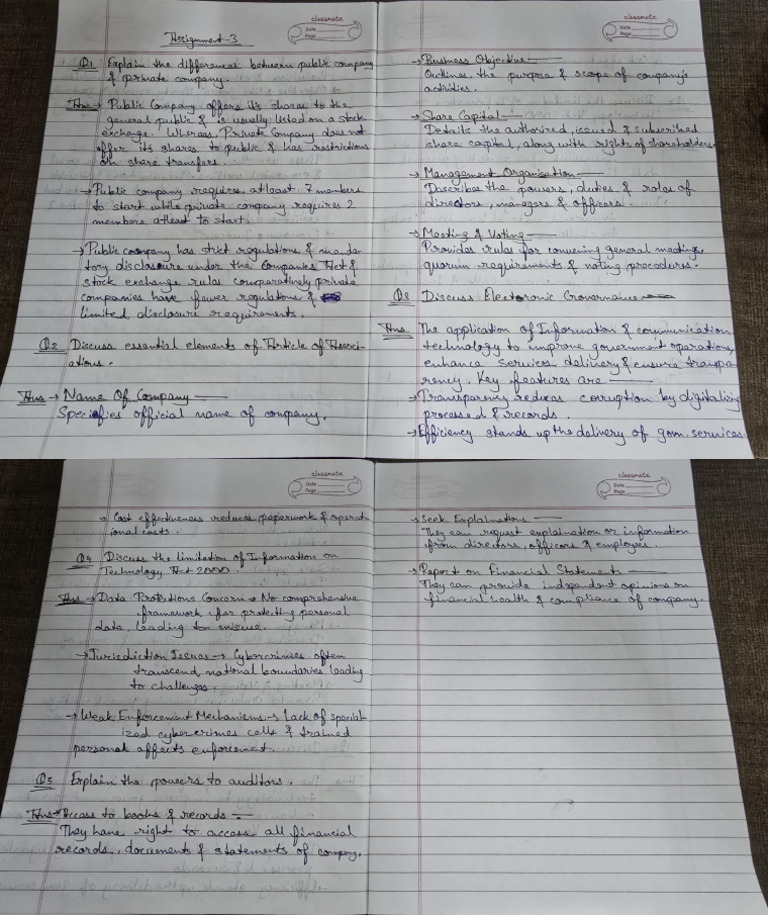 classmate
Date
Page
Assignment-3
Q1 Explain the differences between public company
& private company.
Ans → Public Company offers its shares to the
general public & is usually listed on a stock
exchange. Whereas, Private Company does not
offer its shares to public & has restrictions
on share transfers.
→ Public company requires atleast 7 members
to start while private company requires 2
members atleast to start.
→ Public company has strict regulations & manda-
tory disclosure under the Companies Act &
stock exchange rules comparatively private
companies have fewer regulations &
limited disclosure requirements.
Q2 Discuss essential elements of Article of Associ-
ations.
Ans → Name Of Company
Specifies official name of company.
classmate
Date
Page
→ Business Objective
Outlines the purpose & scope of company's
activities.
→ Share Capital
Details the authorized, issued & subscribed
share capital, along with rights of shareholders.
→ Management Organisation
Describes the powers, duties & roles of
directors, managers & officers.
→ Meeting & Voting
Provides rules for convening general meetings,
quorum requirements & voting procedures.
Q3 Discuss Electronic Governance
Ans The application of Information & communication
technology to improve government operations,
enhance services delivery & ensure transpa-
rency. Key features are
→ Transparency reduces corruption by digitalising
processed & records.
→ Efficiency stands up the delivery of govn. services
classmate
Date
Page
→ Cost effectiveness reduces paperwork & operat-
ional costs.
Q4 Discuss the limitation of Information on
Technology Act 2000
Ans → Data Protections Concern → No comprehensive
framework for protecting personal
data, leading to misuse.
→ Jurisdiction Issues → Cybercrimes often
transcend national boundaries leading
to challenges.
→ Weak Enforcement Mechanisms → Lack of special-
ized cybercrimes cells & trained
personal affects enforcement.
Q5 Explain the powers to auditors.
Ans → Access to books & records
They have right to access all financial
records, documents & statements of compay.
classmate
Date
Page
→ Seek Explainations
They can request explaination or information
from directors, officers & employes.
→ Report on Financial Statements
They can provide independent opinions on
financial health & compliance of company.